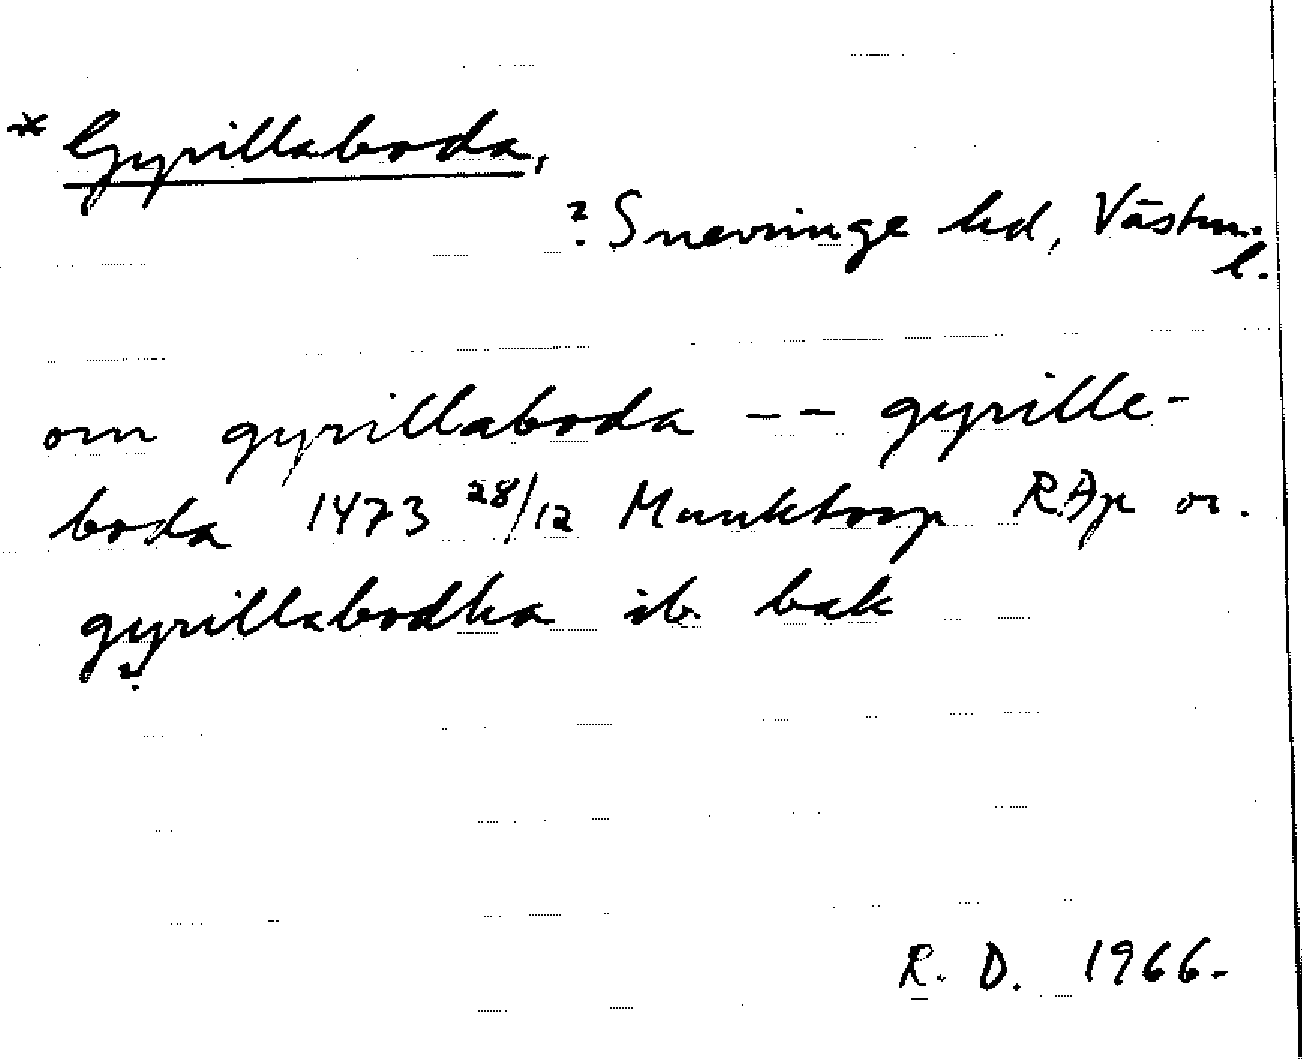 * Gyrillaboda,
? Snevringe hd, Västm.
l.
om gyrillaboda -- gyrille-
boda 1473 28/12 Munktorp RAp or.
gyrillabodha ib. bak
?
R. D. 1966.